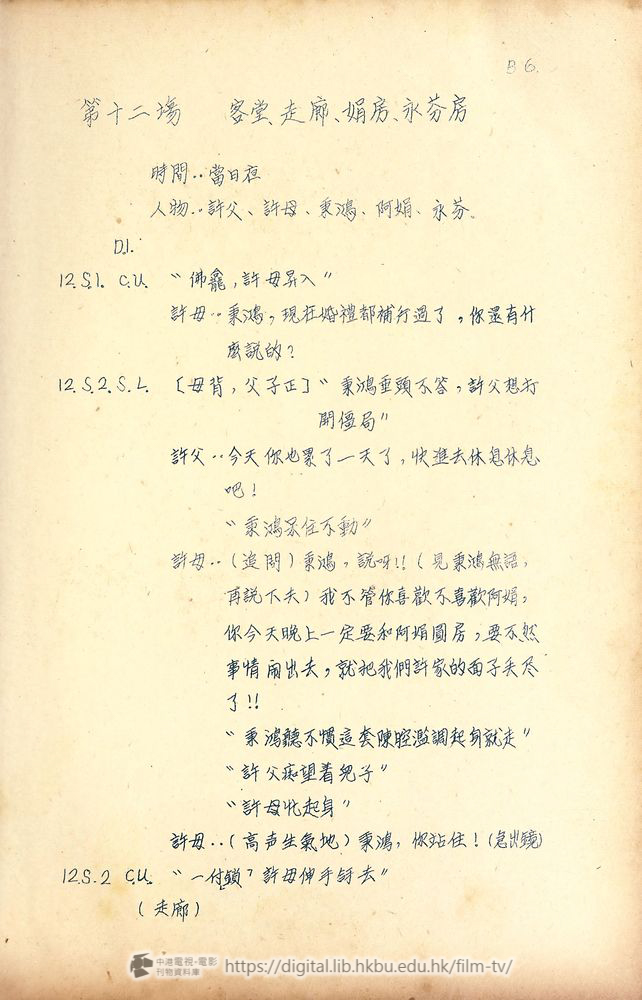 B 6.
第十二場　客堂、走廊、娟房、永芬房
時間：當日夜
人物：許父、許母、秉鴻、阿娟、永芬。
D.I.
12.S.1. C.U. “佛龕，許母昇入”
許母：秉鴻，現在婚禮都補行過了，你還有什
麼說的？
12.S.2.S.L. 〔母背，父子正〕“秉鴻垂頭不答，許父想打
開僵局”
許父：今天你也累了一天了，快進去休息休息
吧！
“秉鴻呆住不動”
許母：（追問）秉鴻，說呀!!（見秉鴻無語，
再說下去）我不管你喜歡不喜歡阿娟，
你今天晚上一定要和阿娟圓房，要不然
事情鬧出去，就把我們許家的面子丟尽
了!!
“秉鴻聽不慣這套陳腔濫調起身就走”
“許父痴望着兒子”
“許母忙起身”
許母：（高声生氣地）秉鴻，你站住！（急出鏡）
12.S.2 C.U. “一付鎖，許母伸手去”
（走廊）
中港電視·電影
刊物資料庫
https://digital.lib.hkbu.edu.hk/film-tv/